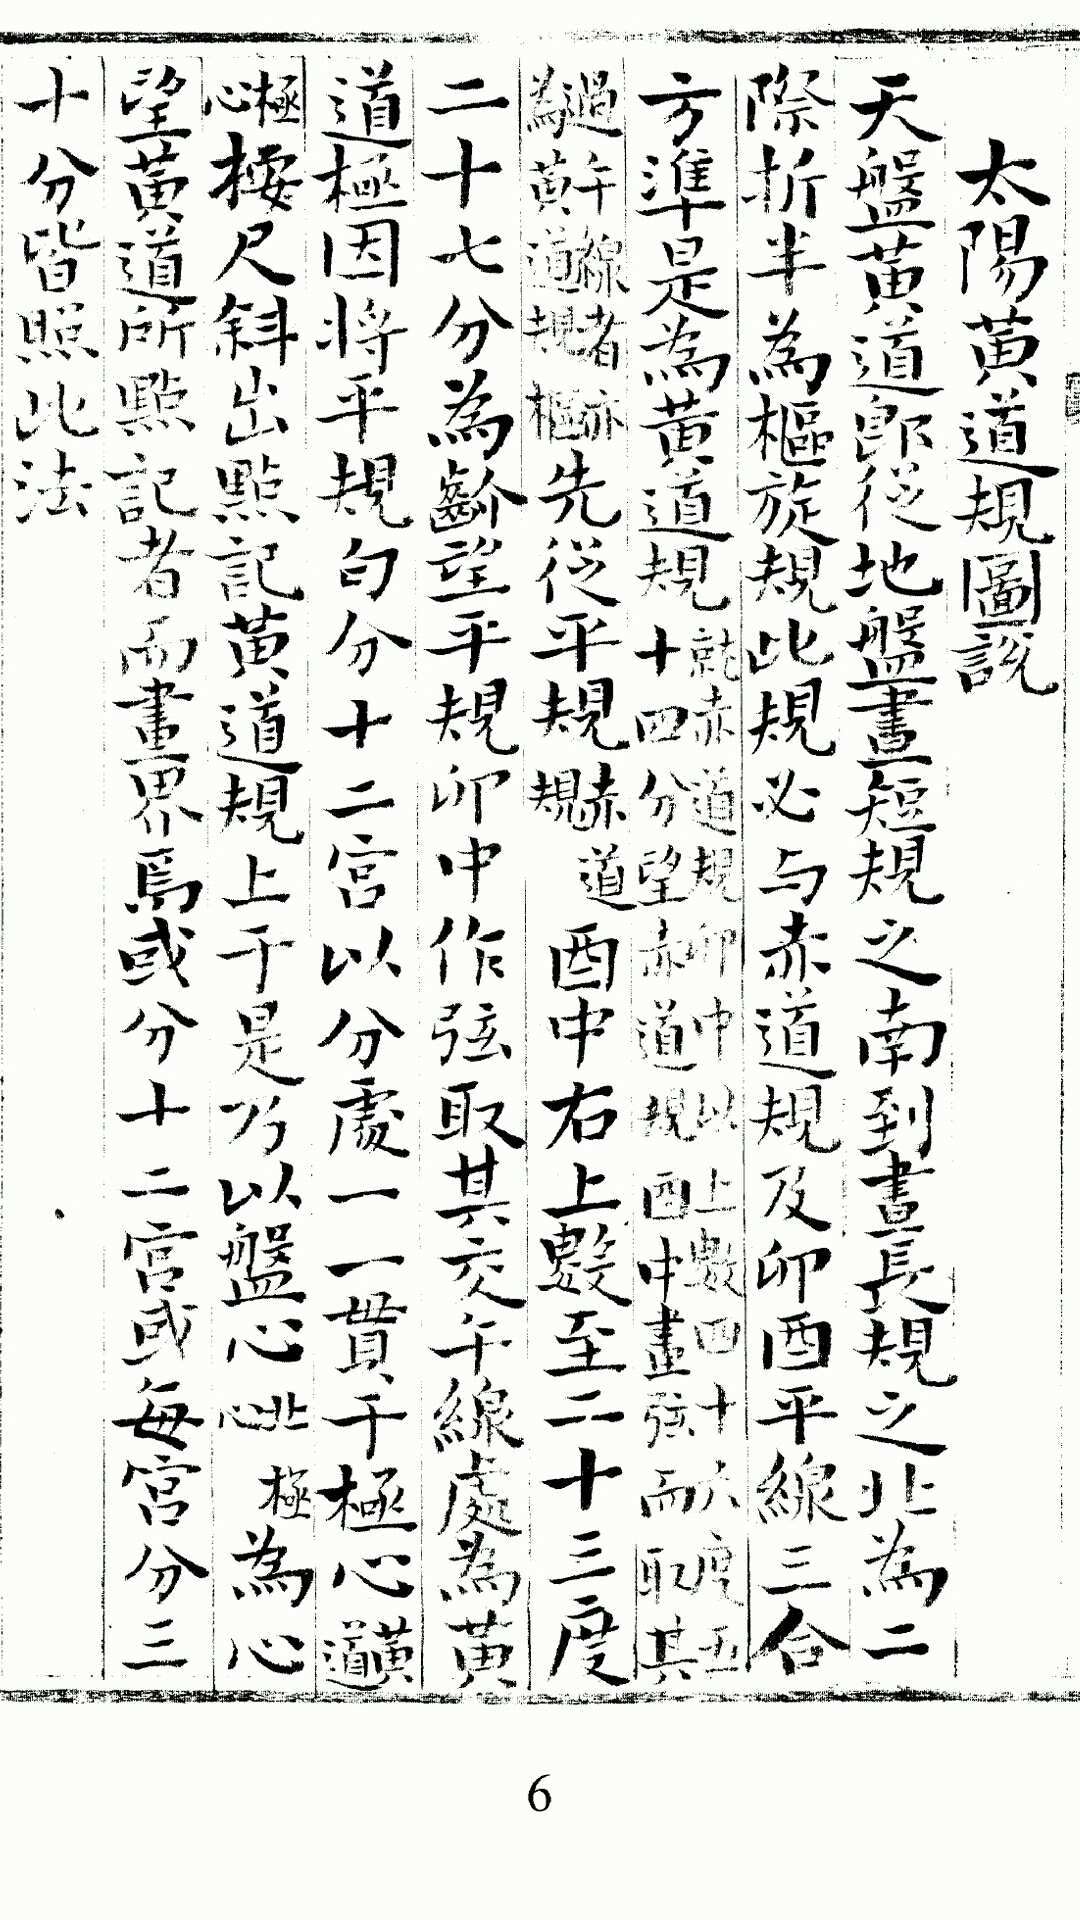 太陽黃道規圖說
天盤黃道即從地盤晝短規之南到晝長規之北為二
際折半為樞旋規此規必与赤道規及卯酉平線三合
方準是為黃道規就赤道規卯中以上數四十六度五十四分望赤道規酉中畫弦而取其
過午線者亦為黃道規樞先從平規赤道規酉中右上數至二十三度
二十七分為齡望平規卯中作弦取其交午線處為黃
道極因将平規匀分十二宮以分處一一貫于極心黃道
極心按尺斜出點記黃道規上于是乃以盤心北極心為心
望黃道所點記者而畫界焉或分十二宮或每宮分三
十分皆照此法
6